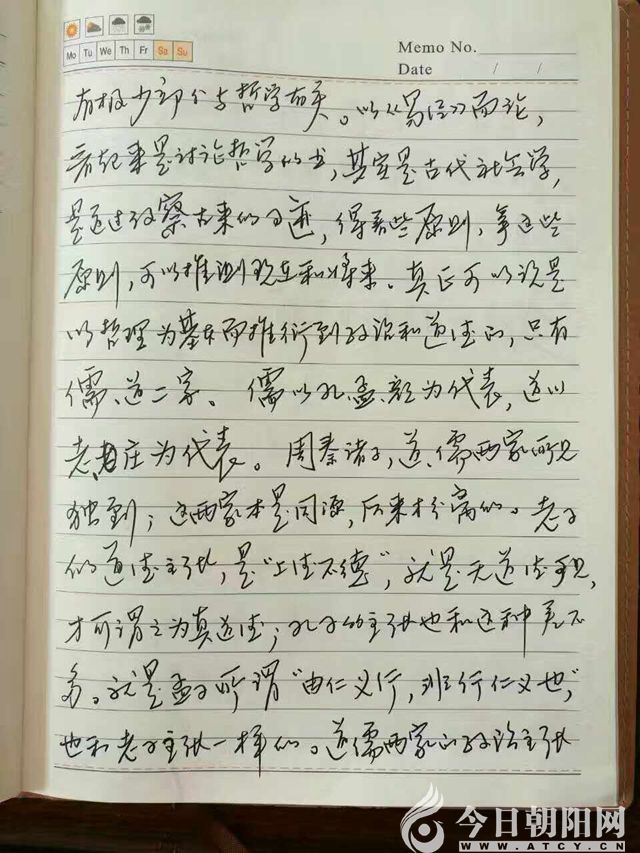 Mo Tu We Th Fr Sa Su
Memo No.
Date / /
有极少部分与哲学有关。以《易经》而论，
看起来是讨论哲学的书，其实是古代社会学，
是通过观察古来的事迹，得着些原则，拿这些
原则，可以推测现在和将来。真正可以说是
以哲理为基本而推衍到政治和道德的，只有
儒、道二家。儒以孔孟颜为代表，道以
老庄为代表。周秦诸子，道、儒两家所见
独到；这两家本是同源，后来才分离的。老子
的道德主张，是“上德不德”，就是无道德乎见，
才可谓之为真道德；孔子的主张也和这种差不
多。就是孟子所谓“由仁义行，非行仁义也”，
也和老子主张一样的。道儒两家的政治主张
今日朝阳网
WWW.ATCY.CN